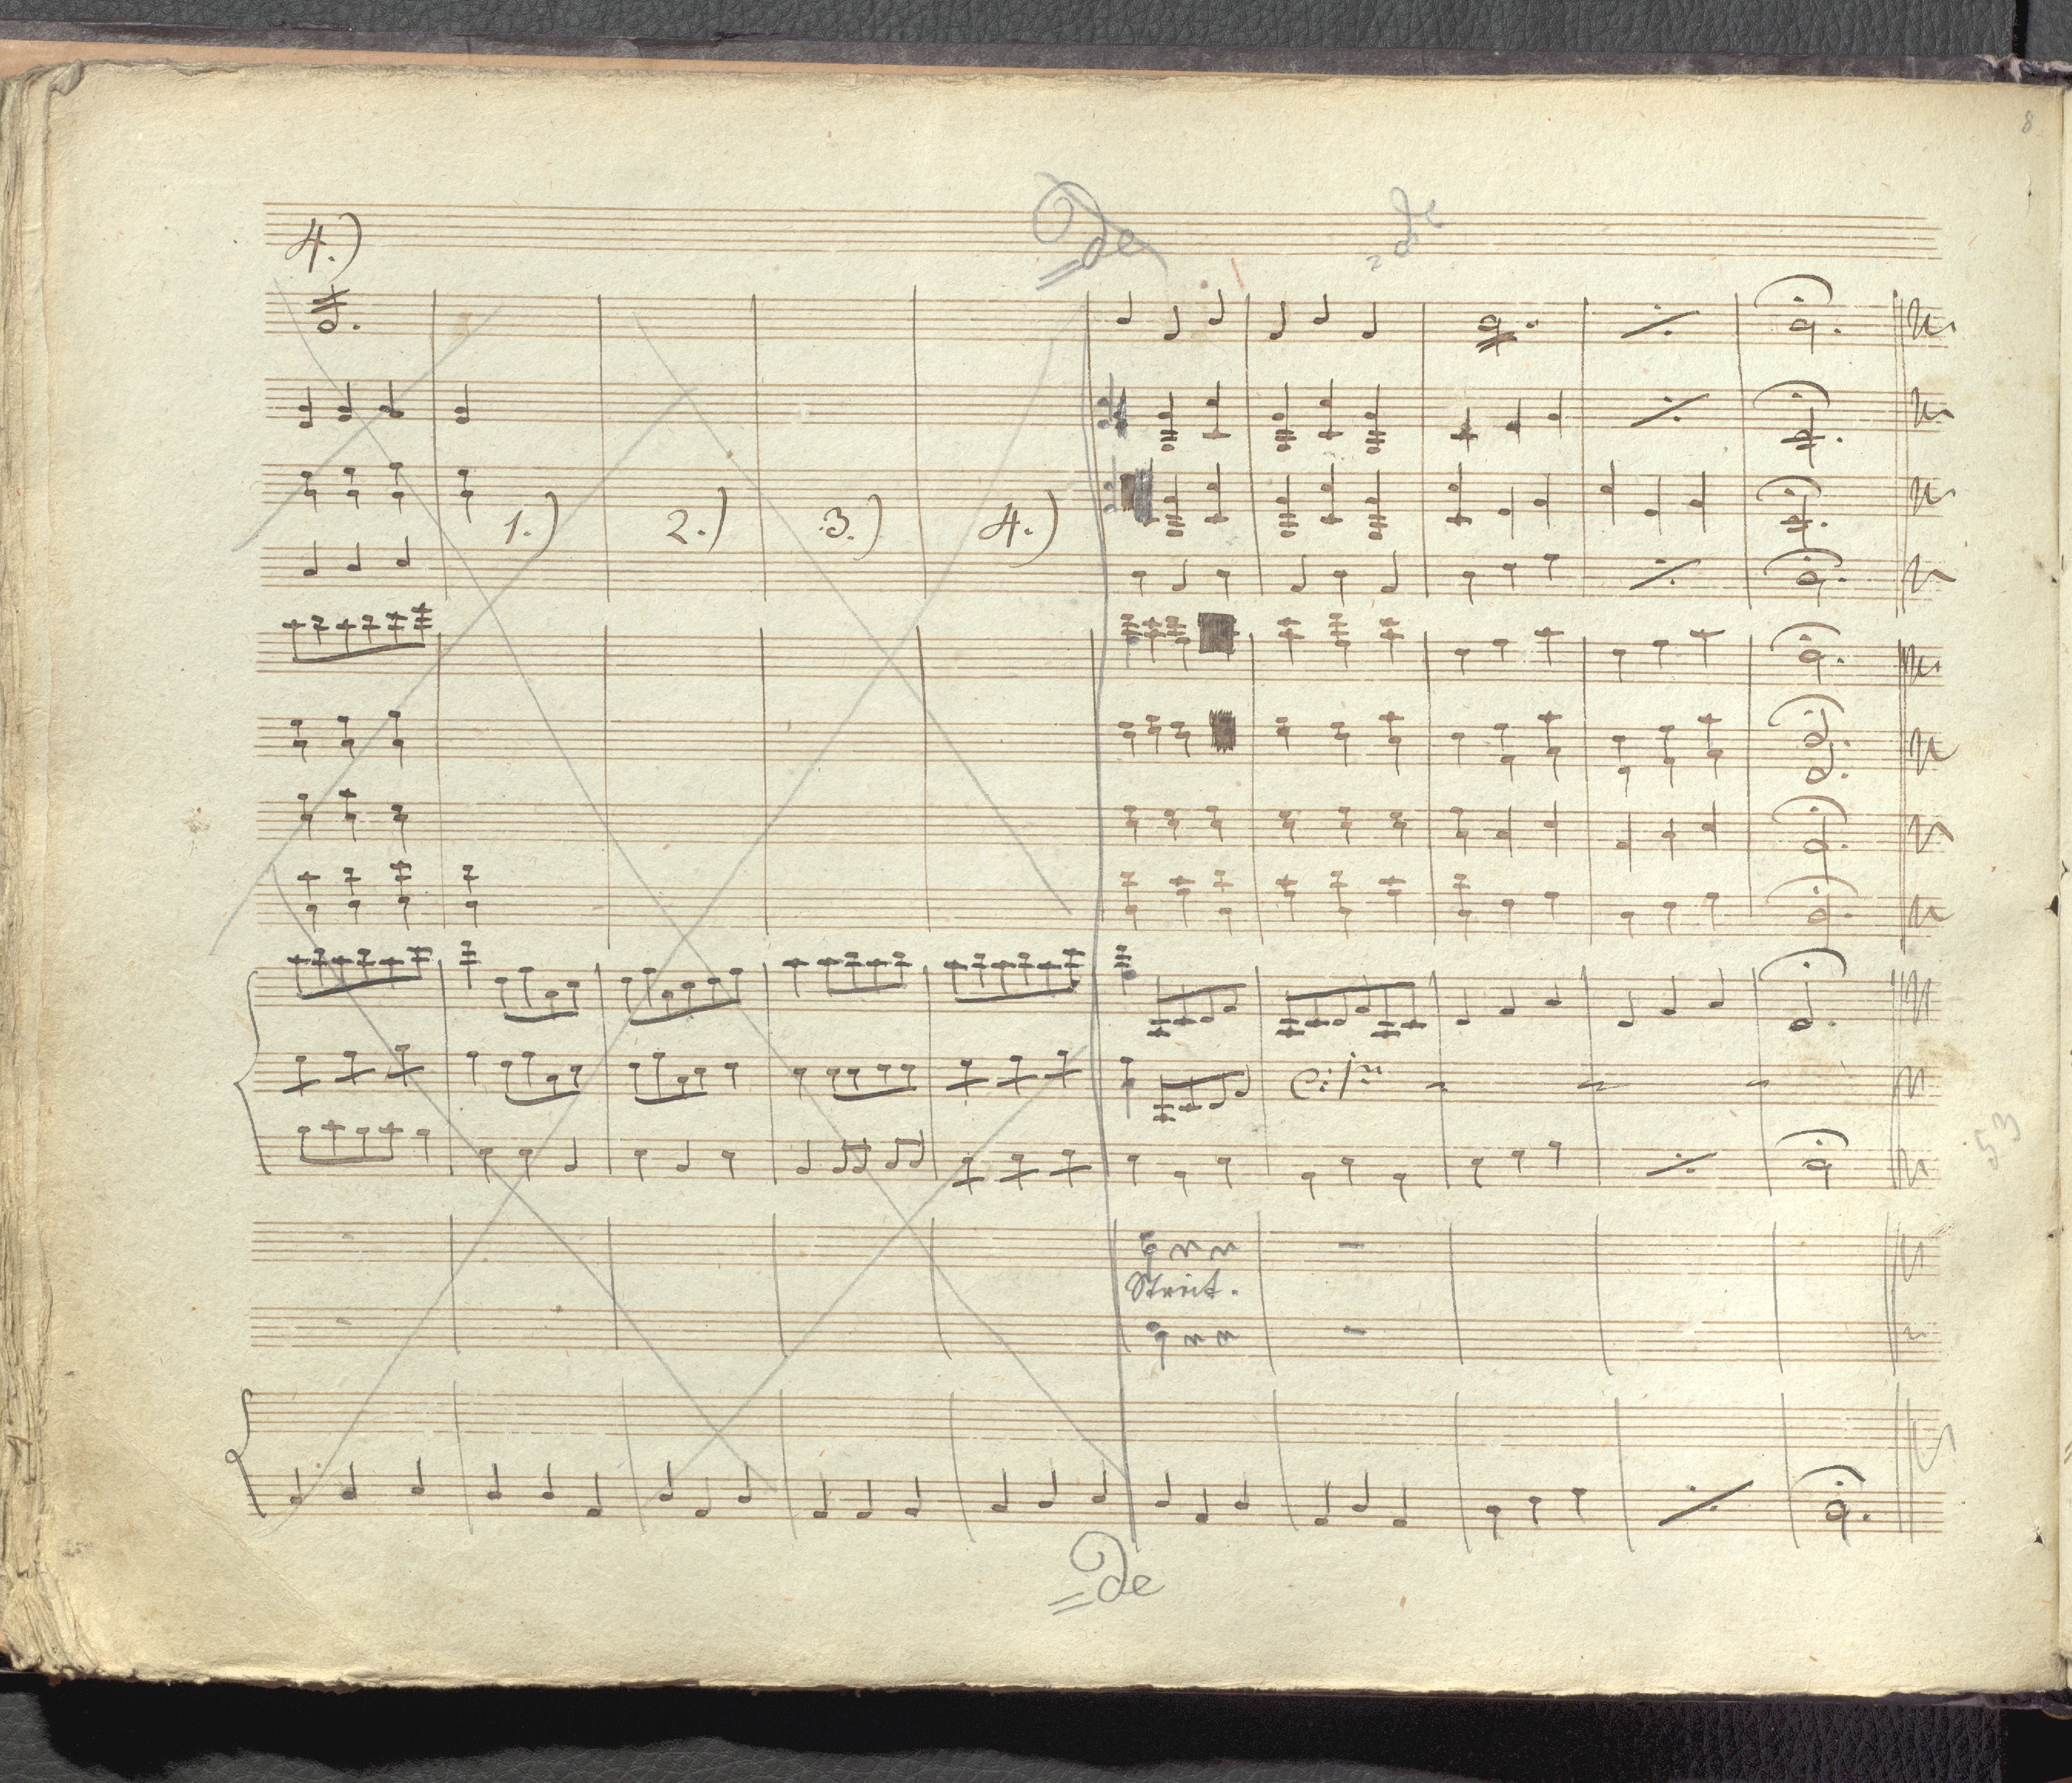 8
=de
=de
4.)
1.) 2.) 3.) 4.)
53
=de